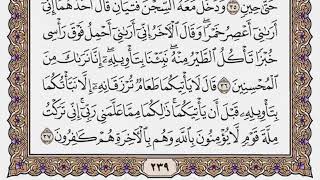 حَتَّىٰ حِينٍ ٣٥ وَدَخَلَ مَعَهُ ٱلسِّجْنَ فَتَيَانِ قَالَ أَحَدُهُمَآ إِنِّيٓ
أَرَىٰنِيٓ أَعْصِرُ خَمْرًا وَقَالَ ٱلْءَاخَرُ إِنِّيٓ أَرَىٰنِيٓ أَحْمِلُ فَوْقَ رَأْسِي
خُبْزًا تَأْكُلُ ٱلطَّيْرُ مِنْهُ نَبِّئْنَا بِتَأْوِيلِهِۦٓ إِنَّا نَرَىٰكَ مِنَ
ٱلْمُحْسِنِينَ ٣٦ قَالَ لَا يَأْتِيكُمَا طَعَامٌ تُرْزَقَانِهِۦٓ إِلَّا نَبَّأْتُكُمَا
بِتَأْوِيلِهِۦ قَبْلَ أَن يَأْتِيَكُمَا ذَٰلِكُمَا مِمَّا عَلَّمَنِي رَبِّيٓ إِنِّي تَرَكْتُ
مِلَّةَ قَوْمٍ لَّا يُؤْمِنُونَ بِٱللَّهِ وَهُم بِٱلْءَاخِرَةِ هُمْ كَٰفِرُونَ ٣٧
٢٣٩